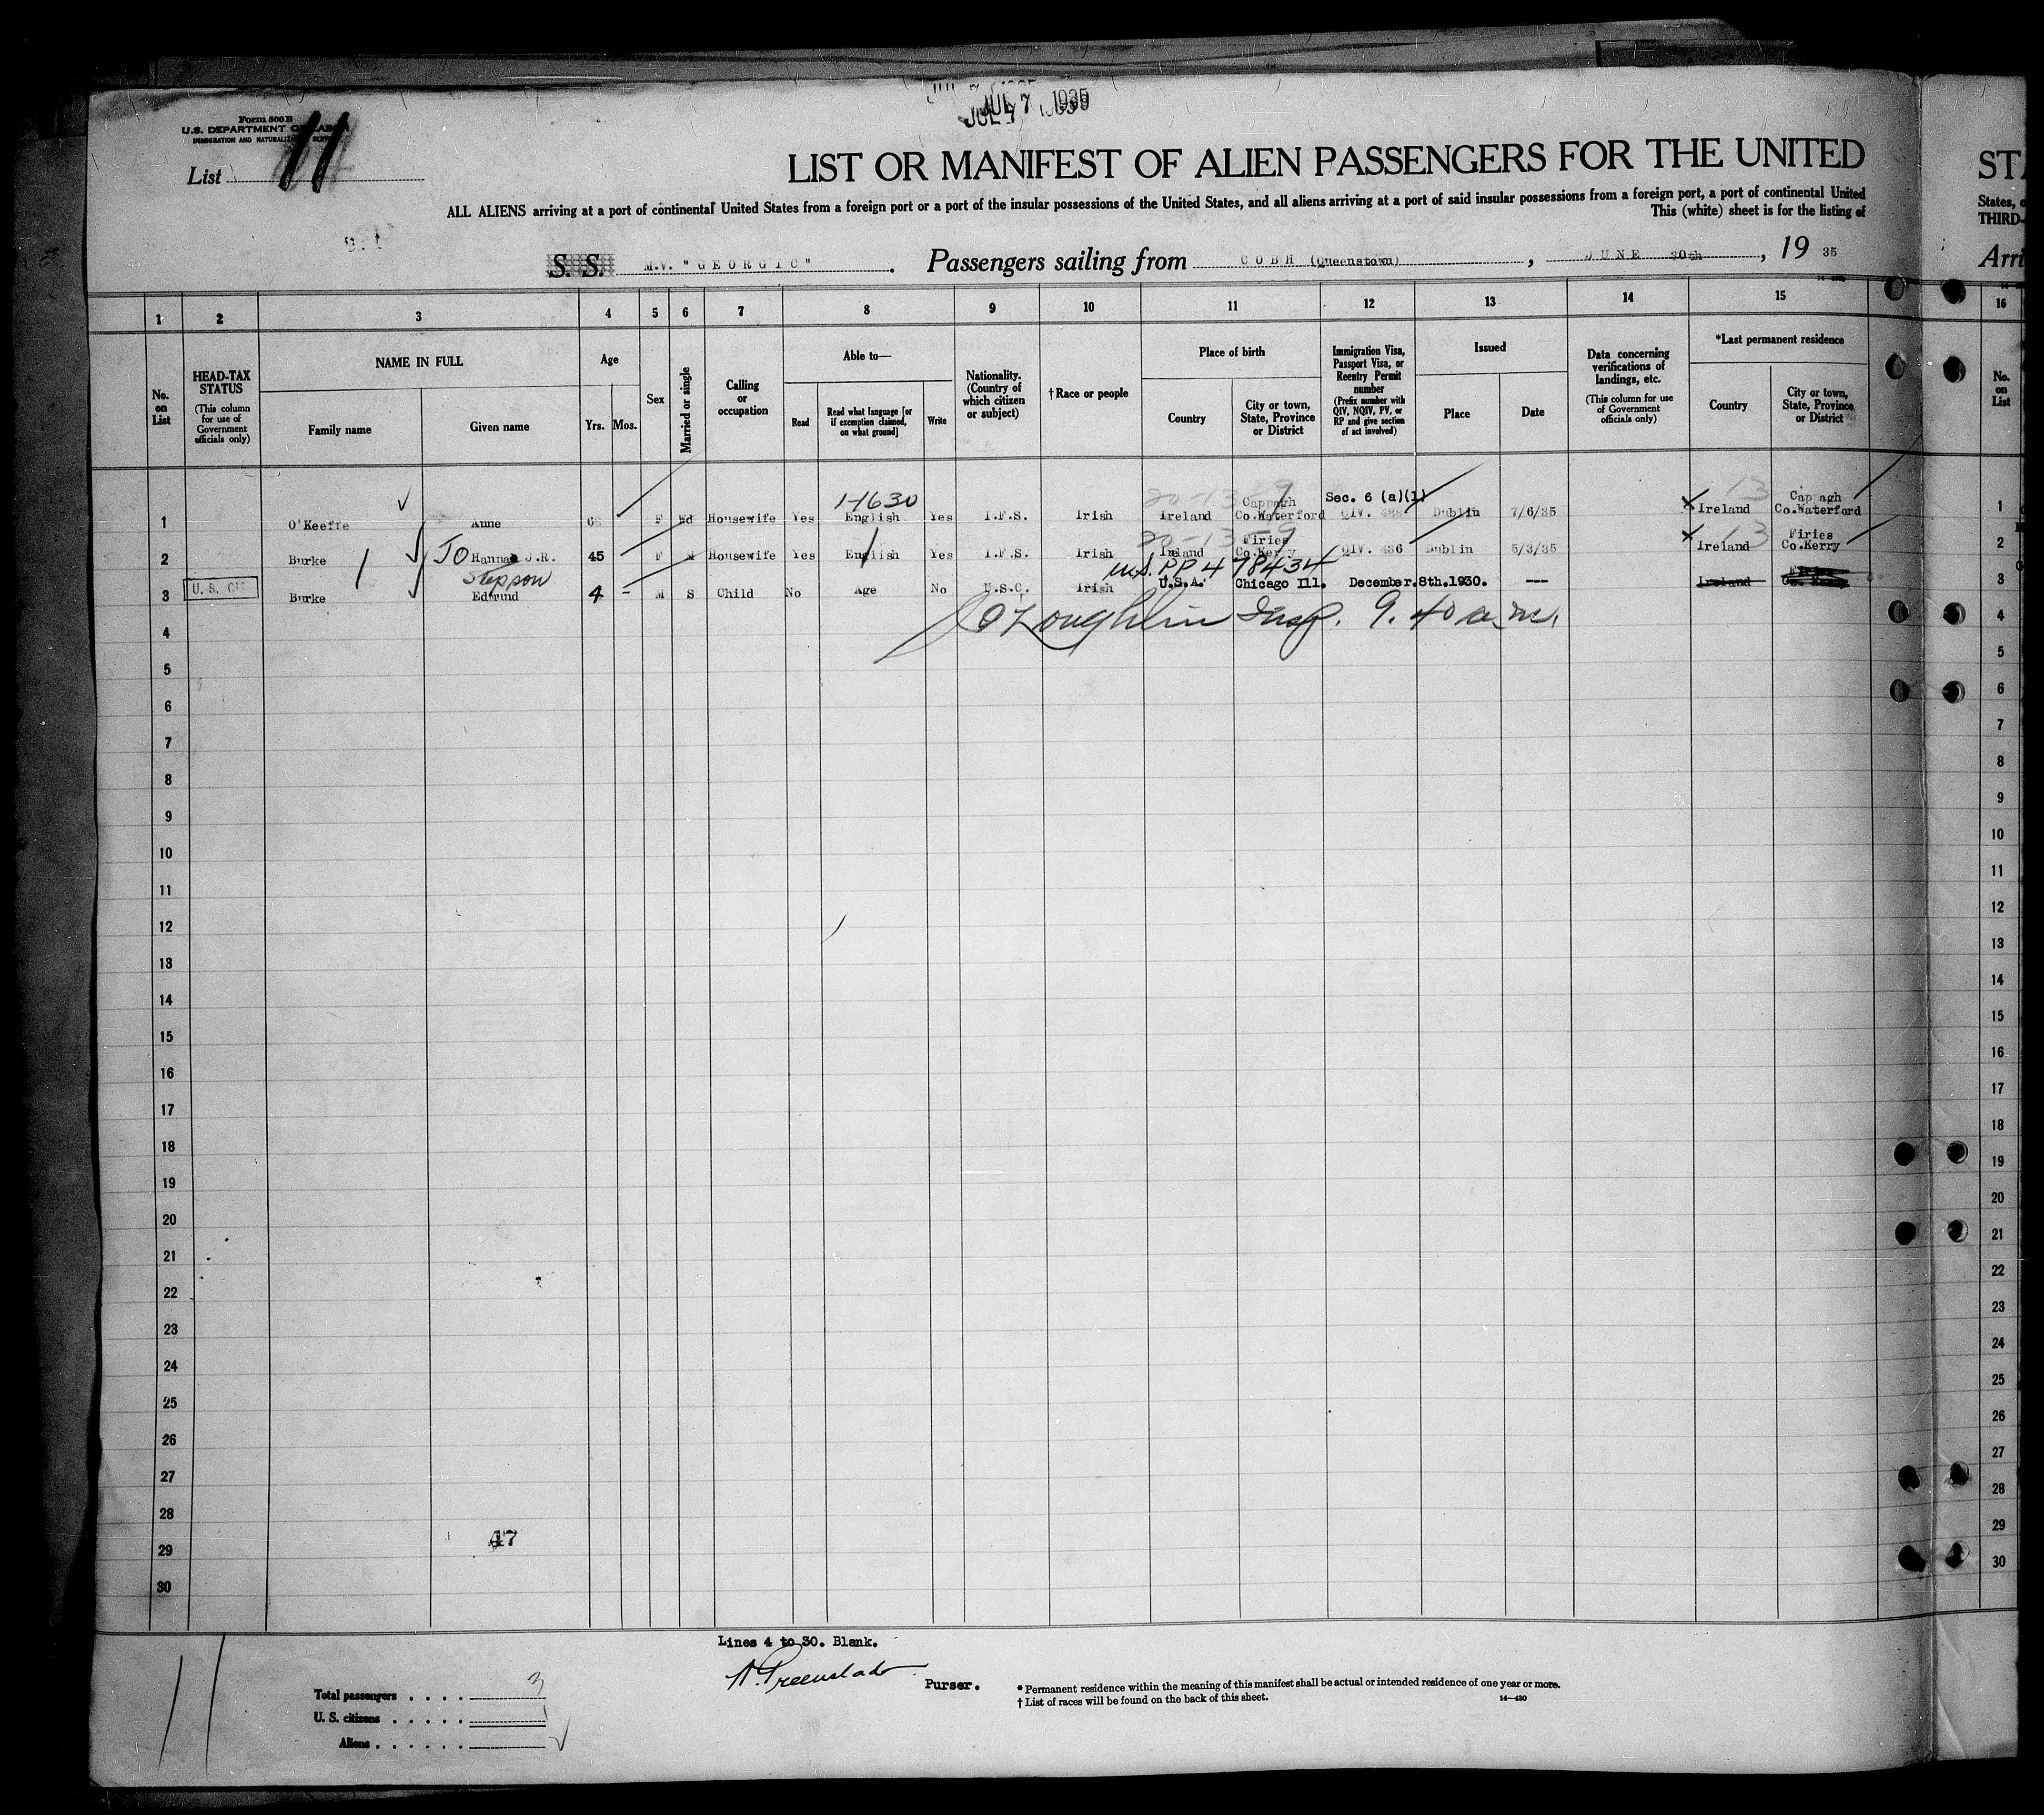 JUL 7 1935
Form 500 B
U.S. DEPARTMENT OF LABOR
IMMIGRATION AND NATURALIZATION SERVICE
List 11
LIST OR MANIFEST OF ALIEN PASSENGERS FOR THE UNITED
STA
ALL ALIENS arriving at a port of continental United States from a foreign port or a port of the insular possessions of the United States, and all aliens arriving at a port of said insular possessions from a foreign port, a port of continental United
States, o
This (white) sheet is for the listing of
THIRD-
S. S. M.V. "GEORGIC" . Passengers sailing from COBH (Queenstown) , JUNE 30th , 19 35
Arri
1 2 3 4 5 6 7 8 9 10 11 12 13 14 15 16
No. on List
HEAD-TAX STATUS
(This column for use of Government officials only)
NAME IN FULL
Family name
Given name
Age
Yrs. Mos.
Sex
Married or single
Calling or occupation
Able to—
Read
Read what language [or if exemption claimed, on what ground]
Write
Nationality. (Country of which citizen or subject)
† Race or people
Place of birth
Country
City or town, State, Province or District
Immigration Visa, Passport Visa, or Reentry Permit number
(Prefix number with QIV, NQIV, PV, or RP and give section of act involved)
Issued
Place
Date
Data concerning verifications of landings, etc.
(This column for use of Government officials only)
*Last permanent residence
Country
City or town, State, Province or District
No. on List
1-1630
20-13-9
Cappagh
Sec. 6 (a)(1)
13
Cappagh
1 O'Keeffe Anne F Wd Housewife Yes English Yes I.F.S. Irish Ireland Co.Waterford QIV. 488 Dublin 7/6/35 Ireland Co.Waterford 1
20-13-9
Firies
13
Firies
2 Burke JO Hannah J.R. 45 F M Housewife Yes English Yes I.F.S. Irish Ireland Co.Kerry QIV. 436 Dublin 5/3/35 Ireland Co.Kerry 2
Stepson
U.S. PP 478434
3 U.S. CIT Burke Edmund 4 - M S Child No Age No U.S.C. Irish U.S.A. Chicago Ill. December.8th.1930. --- Ireland 3
4 J O'Loughlin Insp. 9.40 a.m. 4
5 5
6 6
7 7
8 8
9 9
10 10
11 11
12 12
13 13
14 14
15 15
16 16
17 17
18 18
19 19
20 20
21 21
22 22
23 23
24 24
25 25
26 26
27 27
28 28
47
29 29
30 30
Lines 4 to 30. Blank.
Purser.
Total passengers . . . . 3
U. S. citizens . . . . . 1
Aliens . . . . . .
11
* Permanent residence within the meaning of this manifest shall be actual or intended residence of one year or more.
† List of races will be found on the back of this sheet.
14—430